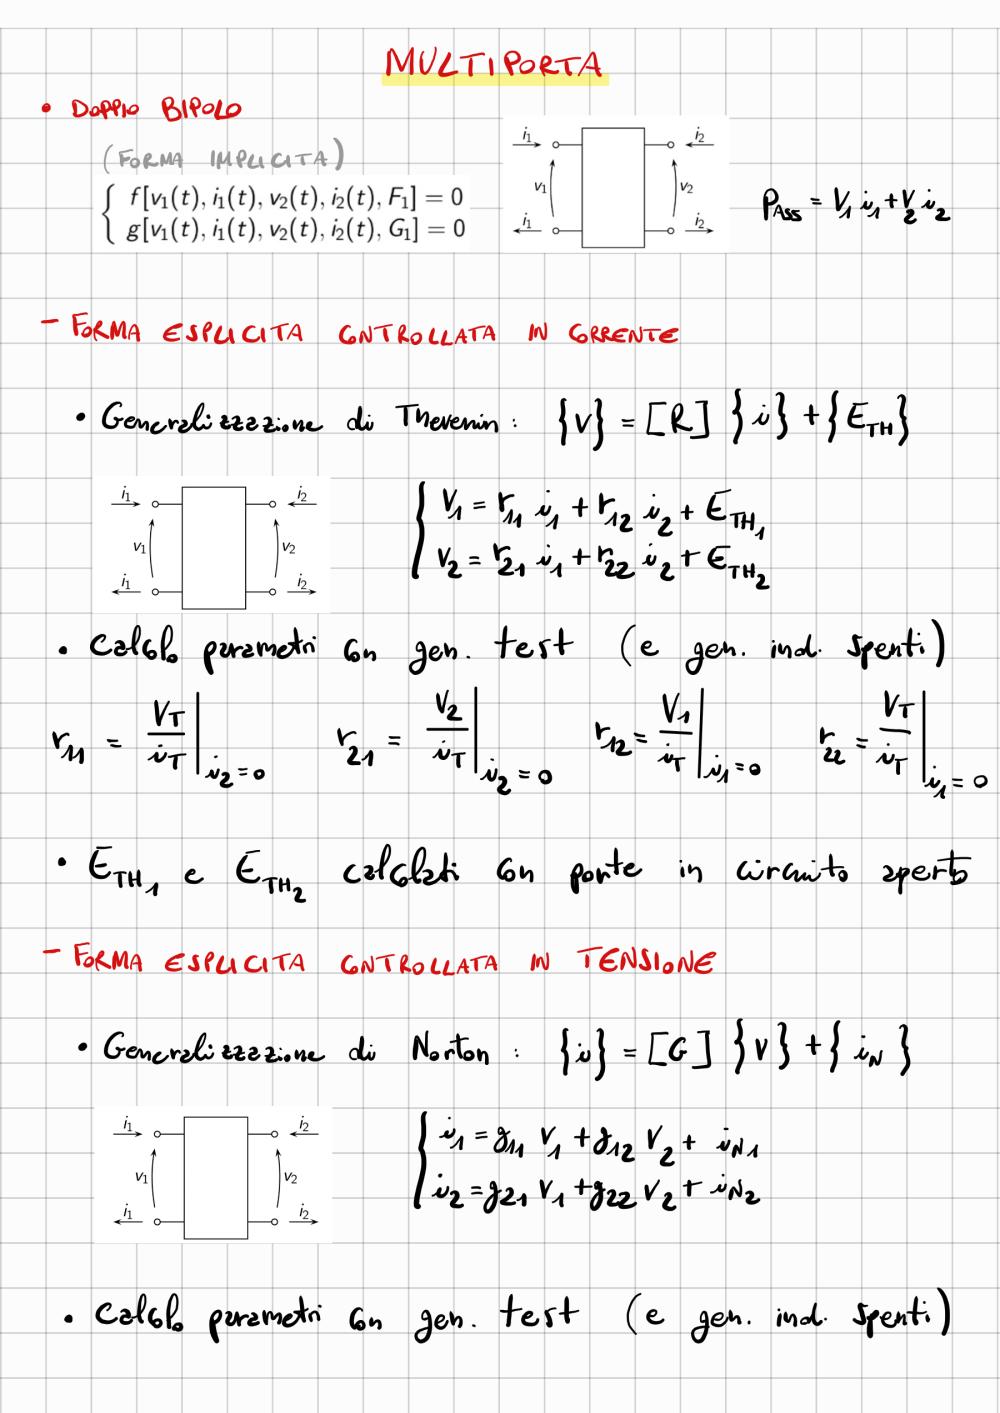 MULTIPORTA
• DOPPIO BIPOLO
(FORMA IMPLICITA)
f[v₁(t), i₁(t), v₂(t), i₂(t), F₁] = 0
g[v₁(t), i₁(t), v₂(t), i₂(t), G₁] = 0
i₁ i₂
v₁ v₂
i₁ i₂
P_ASS = V₁ i₁ + V₂ i₂
- FORMA ESPLICITA CONTROLLATA IN CORRENTE
• Generalizzazione di Thevenin : {V} = [R] {i} + {E_TH}
i₁ i₂
v₁ v₂
i₁ i₂
V₁ = r₁₁ i₁ + r₁₂ i₂ + E_TH₁
V₂ = r₂₁ i₁ + r₂₂ i₂ + E_TH₂
• Calcolo parametri con gen. test (e gen. ind. spenti)
r₁₁ = V_T / i_T |i₂=0 r₂₁ = V₂ / i_T |i₂=0 r₁₂ = V₁ / i_T |i₁=0 r₂₂ = V_T / i_T |i₁=0
• E_TH₁ e E_TH₂ calcolati con porte in circuito aperto
- FORMA ESPLICITA CONTROLLATA IN TENSIONE
• Generalizzazione di Norton : {i} = [G] {V} + {i_N}
i₁ i₂
v₁ v₂
i₁ i₂
i₁ = g₁₁ V₁ + g₁₂ V₂ + i_N₁
i₂ = g₂₁ V₁ + g₂₂ V₂ + i_N₂
• Calcolo parametri con gen. test (e gen. ind. spenti)